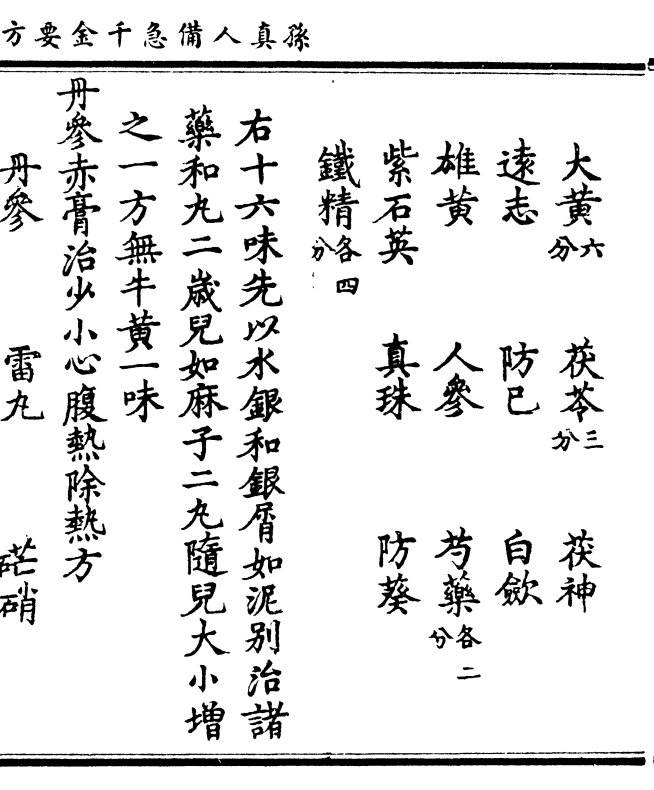 孫真人備急千金要方
大黃六分 茯苓三分 茯神
遠志 防己 白歛
雄黃 人參 芍藥各二分
紫石英 真珠 防葵
鐵精各四分
右十六味先以水銀和銀屑如泥別治諸
藥和丸二歲兒如麻子二丸隨兒大小增
之一方無牛黃一味
丹參赤膏治少小心腹熱除熱方
丹參 雷丸 硭硝